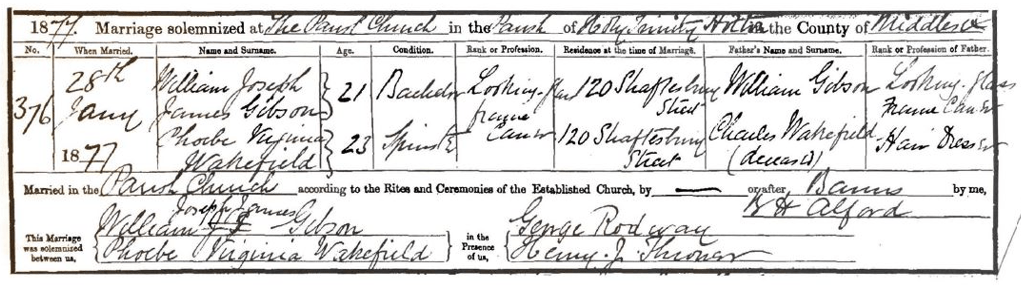 1877. Marriage solemnized at The Parish Church in the Parish of Holy Trinity Hoxton in the County of Middlesex
No. When Married. Name and Surname. Age. Condition. Rank or Profession. Residence at the time of Marriage. Father's Name and Surname. Rank or Profession of Father.
376 28th Jany 1877 William Joseph James Gibson 21 Bachelor Looking-glass frame Carver 120 Shaftesbury Street William Gibson Looking-glass Frame Carver
Phoebe Virginia Wakefield 23 Spinster 120 Shaftesbury Street Charles Wakefield (deceased) Hair Dresser
Married in the Parish Church according to the Rites and Ceremonies of the Established Church, by — or after Banns by me,
B H Alford
This Marriage was solemnized between us, William Joseph James Gibson
Phoebe Virginia Wakefield
in the Presence of us, George Rodway
Henry J